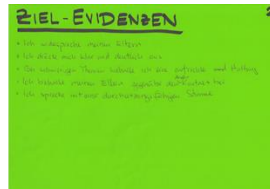 ZIEL-EVIDENZEN
2
• Ich widerspreche meinen Eltern
• Ich drücke mich klar und deutlich aus
• Bei schwierigen Themen behalte ich eine aufrechte Haltung
• Ich behalte meinen Eltern gegenüber den
• Ich spreche mit einer durchsetzungsfähigen Stimme